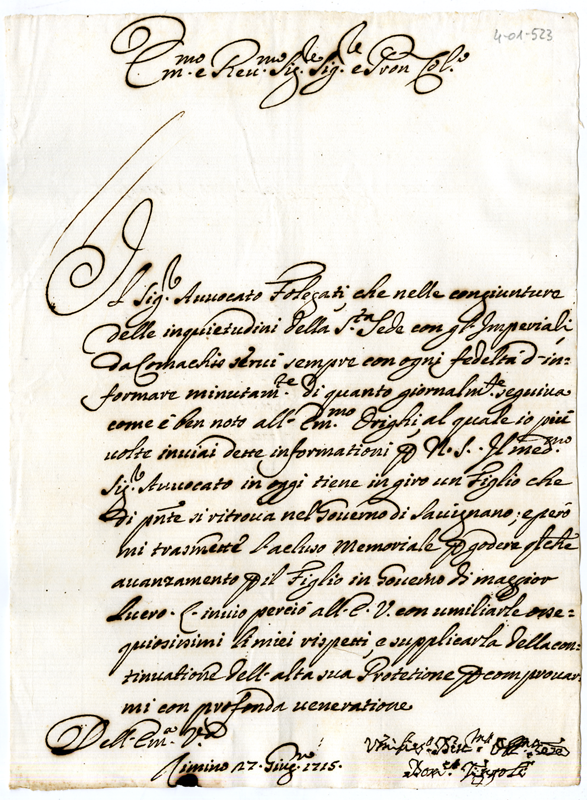 4-01-523
Em.mo e Reu.mo Sig.re Sig.re e Pron Col.o
Il Sig.r Auuocato Folegati, che nelle congiunture
delle inquietudini della S.ta Sede con gl'Imperiali,
da Comachio seruì sempre con ogni fedeltà d'in=
formare minutam.te di quanto giornalm.te seguiua
come è ben noto all'Em.mo Orighi, al quale io più
uolte inuiai dette informationi p N. S. Il med.mo
Sig.r Auuocato in oggi tiene in giro un Figlio che
di pnte si ritroua nel Gouerno di Sauignano, e però
mi trasmette l'acluso Memoriale p godere qlche
auanzamento p il Figlio in Gouerno di maggior
Lucro. L'inuio perciò all'E. V. con umiliarle osse=
quiosissimi li miei rispetti, e supplicarla della con=
tinuatione dell'alta sua Protetione p comprouar
mi con profonda ueneratione
Dell'Em.a V.ra
Rimino 27. Giug.no 1715.